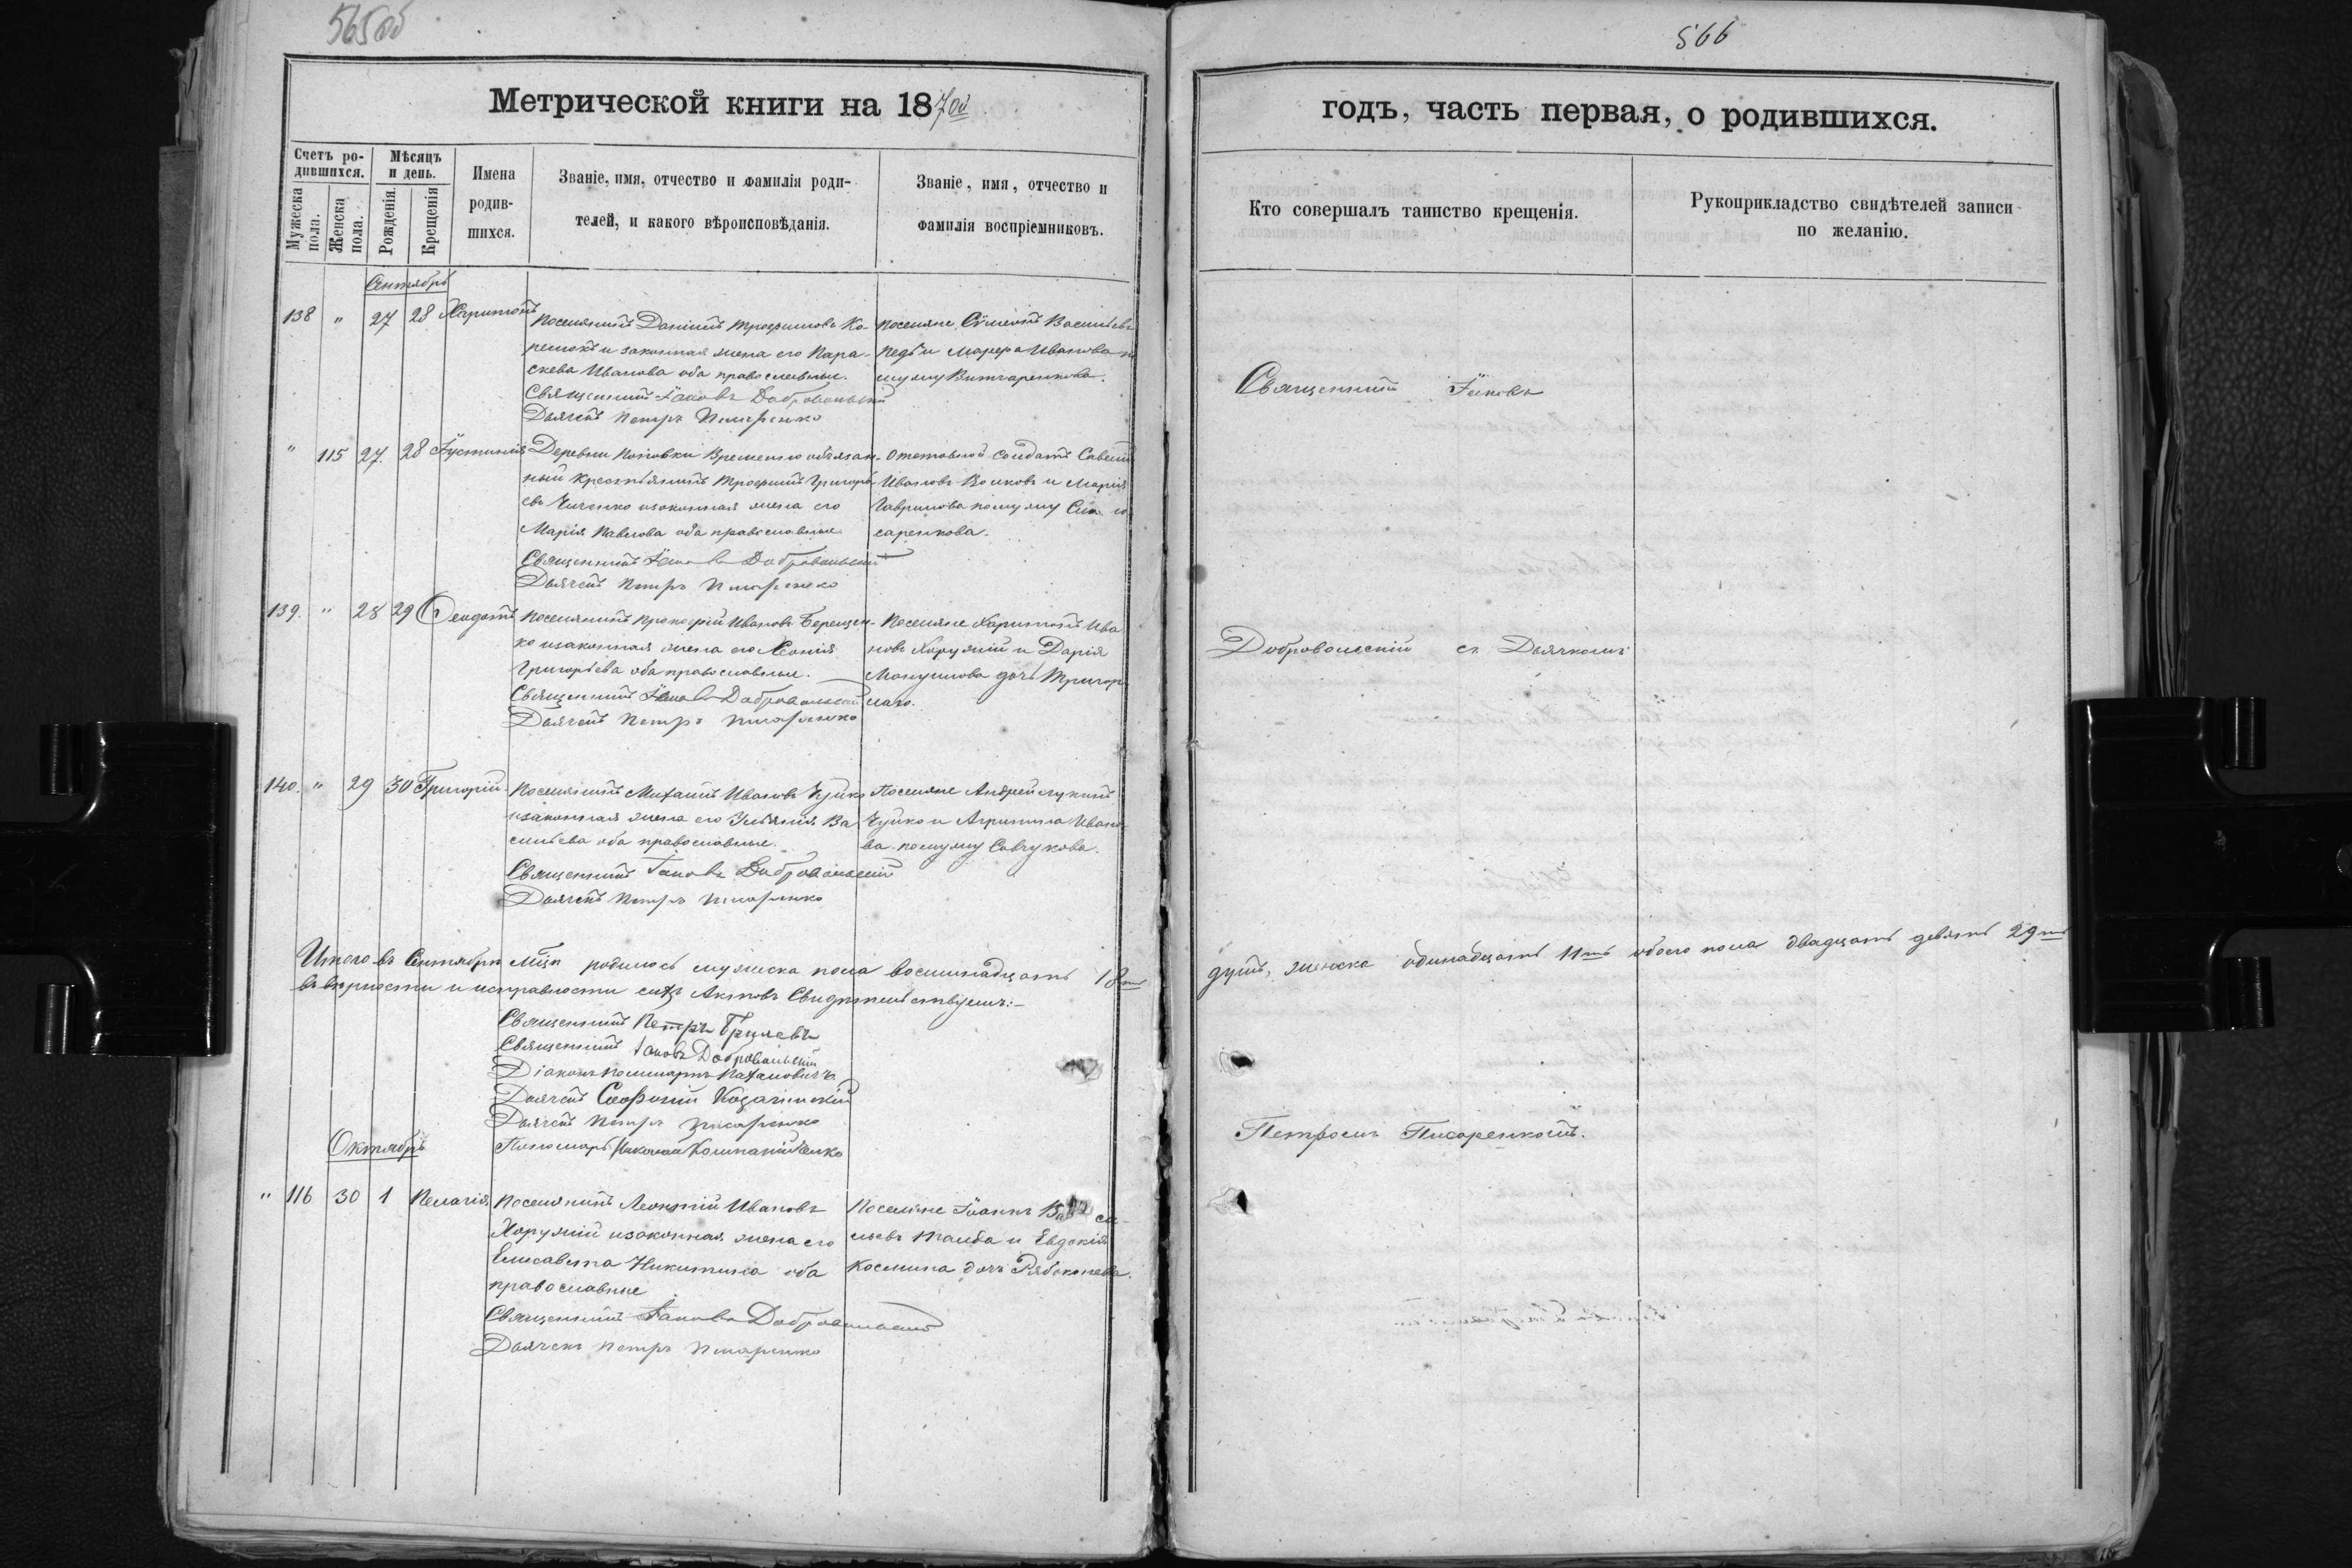 565 об
Метрической книги на 1870й
Счетъ ро-
дившихся.
Мѣсяцъ
и день.
Имена
родив-
шихся.
Званіе, имя, отчество и фамилія роди-
телей, и какого вѣроисповѣданія.
Званіе, имя, отчество и
фамилія воспріемниковъ.
Мужеска
пола.
Женска
пола.
Рожденія.
Крещенія
Сентябрь
138 " 27 28 Харитонъ
Поселянинъ Даніилъ Трофимовъ Ко-
и законная жена его Пара-
скева Иванова оба православные.
Священникъ Іаковъ Добровольскій
Дьячекъ Петръ Писаренко
Поселяне Сѵмеонъ Васильевъ
и Марфа Иванова по
мужу
" 115 27. 28 Іустинія
Деревни Поповки Временно обязан-
ный крестьянинъ Трофимъ Григорі-
евъ и законная жена его
Марія Павлова оба православные
Священникъ Іаковъ Добровольскій
Дьячекъ Петръ Писаренко
Отставной солдатъ Савелій
Ивановъ Волковъ и Марія
Гаврилова по мужу
саренкова.
139. " 28 29 Ѳеодотъ
Поселянинъ Прокофій Ивановъ Терещен-
ко и законная жена его Ксенія
Григорьева оба православные.
Священникъ Іаковъ Добровольскій
Дьячекъ Петръ Писаренко
Поселяне Харитонъ Ива
новъ Хоружій и Дарія
дочь
140. " 29 30 Григорій
Поселянинъ Михаилъ Ивановъ Чуйко
и законная жена его Ульянія Ва
сильева оба православные.
Священникъ Іаковъ Добровольскій
Дьячекъ Петръ Писаренко
Поселяне Андрей Лукинъ
Чуйко и Агрипина Ивано
ва по мужу Савчукова.
Итого въ Сентябрѣ мѣцѣ родилось мужеска пола восемнадцать 18ть
въ вѣрности и исправности сихъ Актовъ Свидѣтельствуемъ:-
Священникъ Петръ
Священникъ Іаковъ Добровольскій
Діаконъ
Дьячекъ Софроній Козачинскій
Дьячекъ Петръ Писаренко
Пономарь Николай Компанійченко
Октябрь
" 116 30 1 Пелагія
Поселянинъ Леонтій Ивановъ
Хоружій и законная жена его
Елисавета Никитина оба
православные
Священникъ Іаковъ Добровольскій
Дьячекъ Петръ Писаренко
Поселяне Іоаннъ Васи
льевъ и Евдокія
Космина дочь Рябоконева.
566
годъ, часть первая, о родившихся.
Кто совершалъ таинство крещенія.
Рукоприкладство свидѣтелей записи
по желанію.
Священникъ Іаковъ
Добровольскій съ Дьячкомъ
душъ, женска одинадцать 11ть обоего пола двадцать девять 29ть
Петромъ Писаренкомъ.